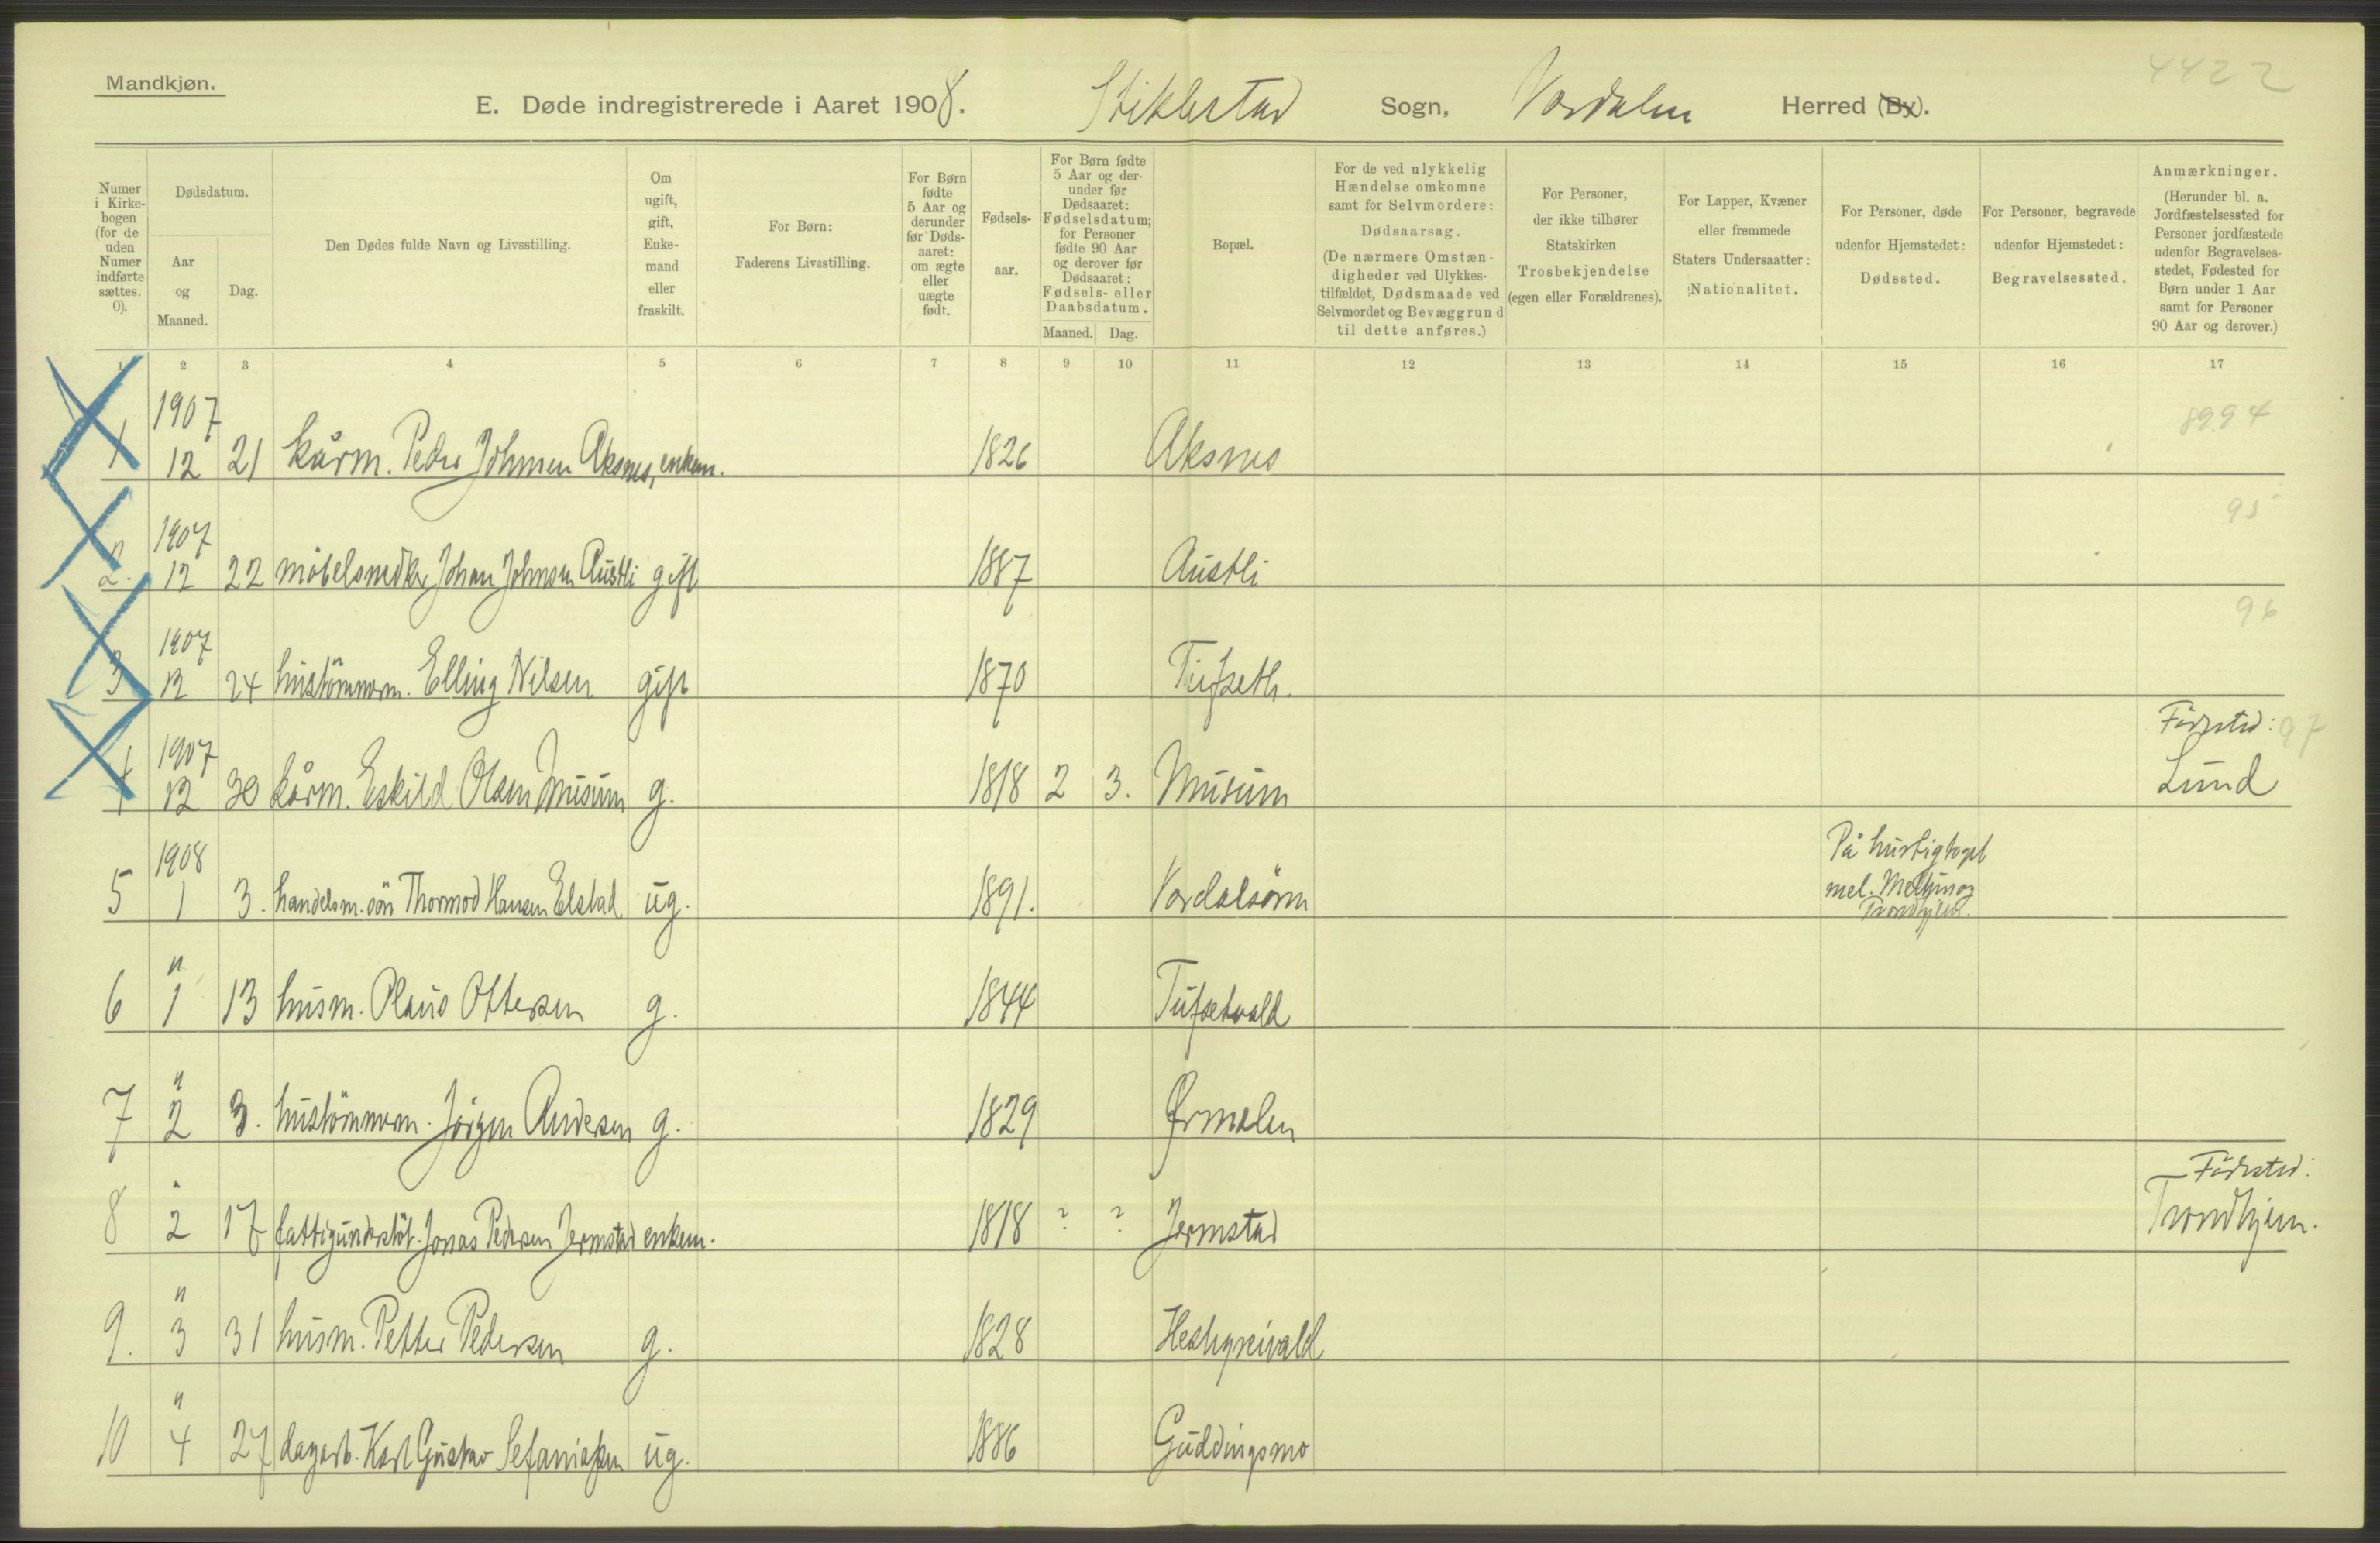 Mandkjøn.
4422
E. Døde indregistrerede i Aaret 1908. Stiklestad Sogn, Værdalen Herred (By).
Numer i Kirkebogen (for de uden Numer indførte sættes. 0).
Dødsdatum.
Aar og Maaned.
Dag.
Den Dødes fulde Navn og Livsstilling.
Om ugift, gift, Enkemand eller fraskilt.
For Børn: Faderens Livsstilling.
For Børn fødte 5 Aar og derunder før Dødsaaret: om ægte eller uægte født.
Fødselsaar.
For Børn fødte 5 Aar og derunder før Dødsaaret: Fødselsdatum; for Personer fødte 90 Aar og derover før Dødsaaret: Fødsels- eller Daabsdatum.
Maaned. Dag.
Bopæl.
For de ved ulykkelig Hændelse omkomne samt for Selvmordere: Dødsaarsag. (De nærmere Omstændigheder ved Ulykkestilfældet, Dødsmaade ved Selvmordet og Bevæggrund til dette anføres.)
For Personer, der ikke tilhører Statskirken Trosbekjendelse (egen eller Forældrenes).
For Lapper, Kvæner eller fremmede Staters Undersaatter: Nationalitet.
For Personer, døde udenfor Hjemstedet: Dødssted.
For Personer, begravede udenfor Hjemstedet: Begravelsessted.
Anmærkninger. (Herunder bl. a. Jordfæstelsessted for Personer jordfæstede udenfor Begravelsesstedet, Fødested for Børn under 1 Aar samt for Personer 90 Aar og derover.)
1 2 3 4 5 6 7 8 9 10 11 12 13 14 15 16 17
1907
1 12 21 kårm. Peder Johnsen Aksnes, enkem. 1826 Aksnes 8994
1907
2. 12 22 möbelsnedk. Johan Johnsen Austli gift 1887 Austli 95
1907
3 12 24 hustömmerm. Elling Nilsen gift 1870 Tufseth. 96
1907 Födested: 97
4 12 30 kårm. Eskild Olsen Musum g. 1818 2 3. Musum Lund
1908 På hurtigtoget
5 1 3. handelsm. sön Thormod Hansen Elstad ug. 1891. Værdalsören mel. og
Trondhjem.
"
6 1 13 husm. Olaus Ottersen g. 1844 Tufsetvald
"
7 2 3. hustömmerm. Jörgen Andersen g. 1829 Ørmelen
" Födested:
8 2 17 fattigunderstöt. Jonas Pedersen Jermstad enkem. 1818 ? ? Jermstad Trondhjem.
"
9. 3 31 husm. Petter Pedersen g. 1828
"
10 4 27 dagarb. Karl Gustav Sefaniassen ug. 1886 Guddingsmo